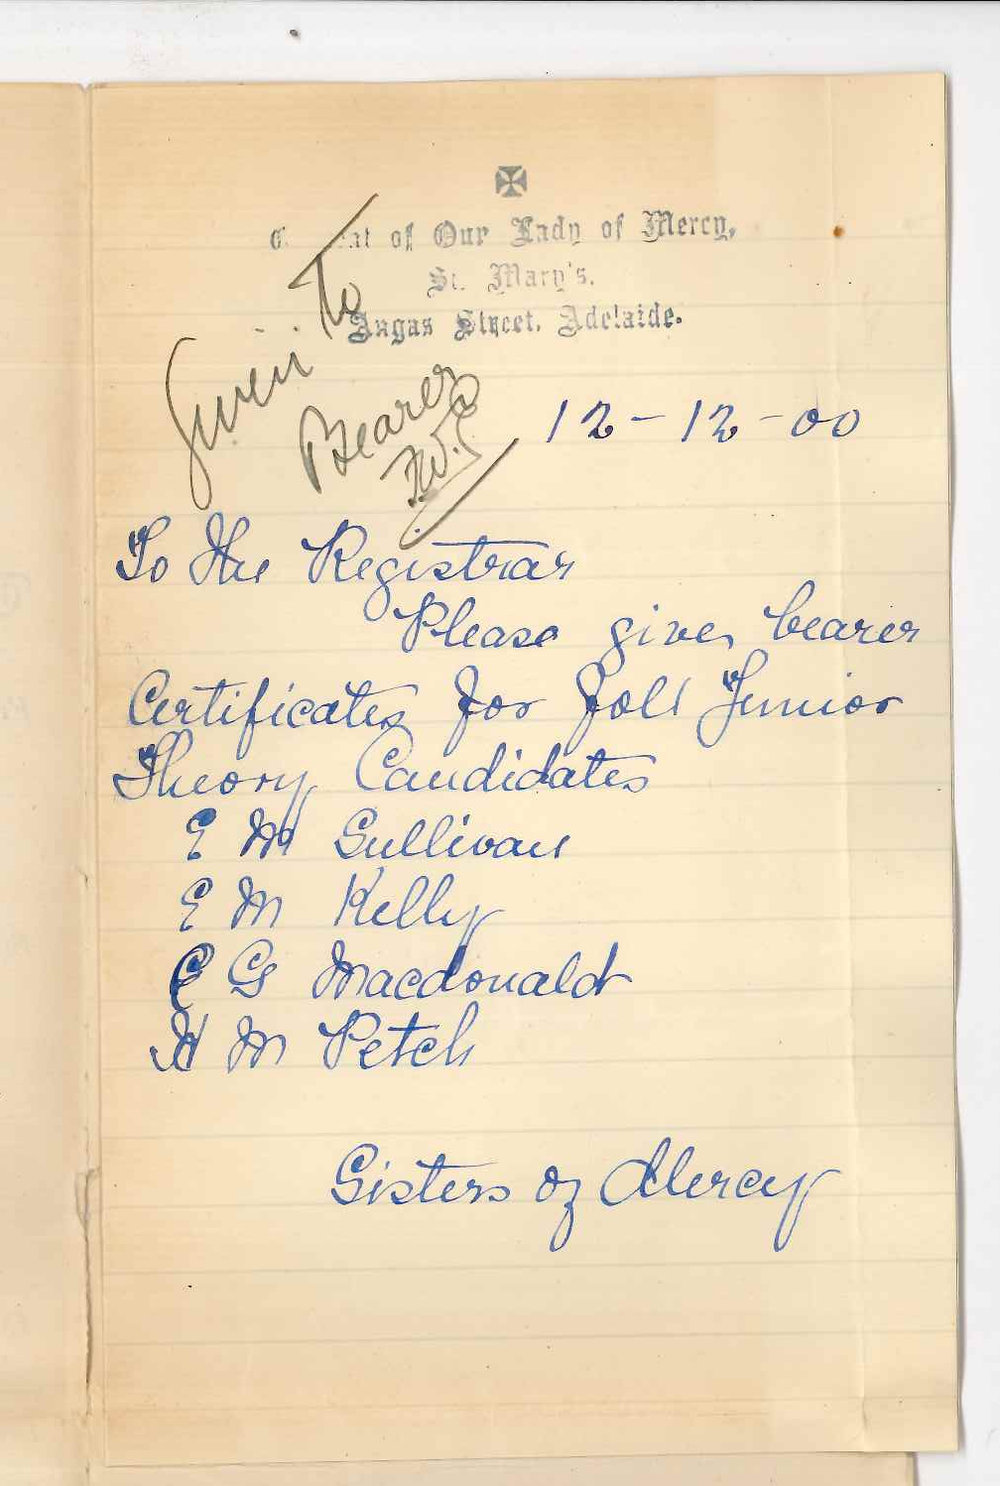 Convent of Our Lady of Mercy,
St. Mary's.
Angas Street. Adelaide.
Given To
Bearer
12-12-00
To the Registrar
Please give bearer
Certificates for foll Junior
Theory Candidates
E M Sullivan
E M Kelly
C G Macdonald
H M Petch
Sisters of Mercy